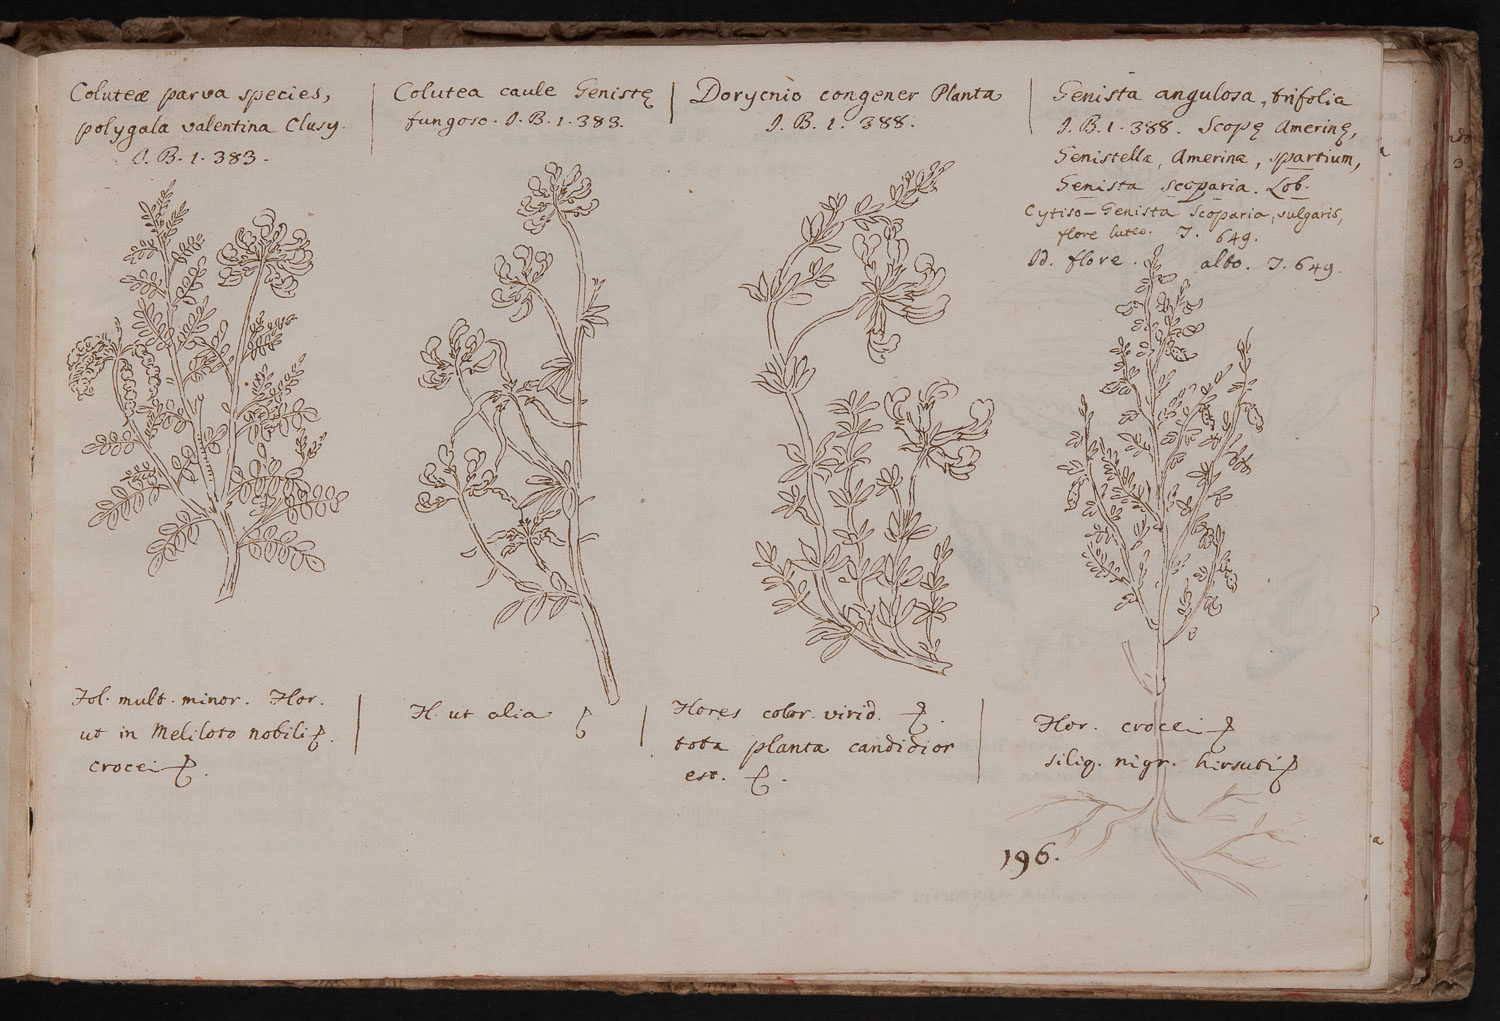 Coluteæ parva species,
polygala valentina Clusy.
I. B. 1. 383.
Colutea caule Genistę
fungoso. I. B. 1. 383.
Dorycnio congener Planta
I. B. 1. 388.
Genista angulosa, trifolia
I. B. 1. 388. Scopę Amerinę,
Genistella, Amerina, spartium,
Genista scoparia. Lob.
Cytiso-Genista scoparia, vulgaris,
flore luteo. T. 649.
Id. flore albo. T. 649.
Fol. mult. minor. Flor.
ut in Meliloto nobili
crocei
Fl. ut alia
Flores color. virid.
tota planta candidior
est.
Flor. crocei
siliq. nigr. hirsuti
196.